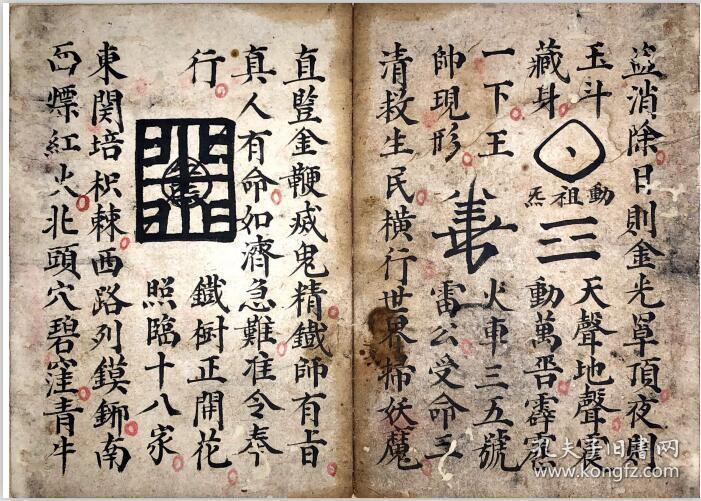 盗消除日則金光罩頂夜則
玉斗
天聲地聲震
藏身
動祖炁
動萬
霹靂
一下王
火車三五號
帥現形
雷公受命
清救生民橫行世界掃妖魔
直豎金鞭滅鬼精鐵師有旨
真人有命如濟急難准令奉
行
鐵樹正開花
照臨十八家
東関培枳棘西路列鏌鎁南
面熛紅火北頭穴碧窪青牛
孔夫子旧书网
kongfz.com